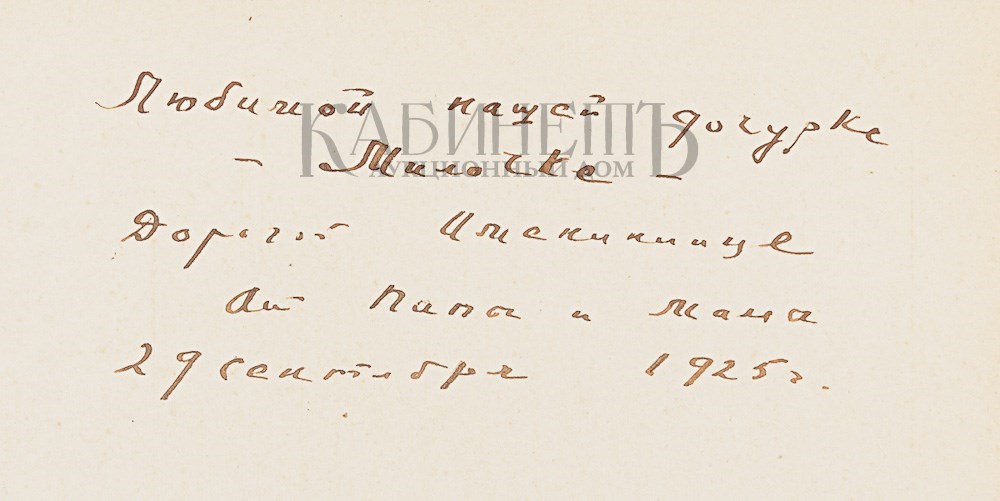 Любимой нашей дочурке
КАБИНЕТЪ
– Милочке –
АУКЦИОННЫЙ ДОМ
Дорогой Имениннице
От Папы и Мамы
29 сентября 1925 г.